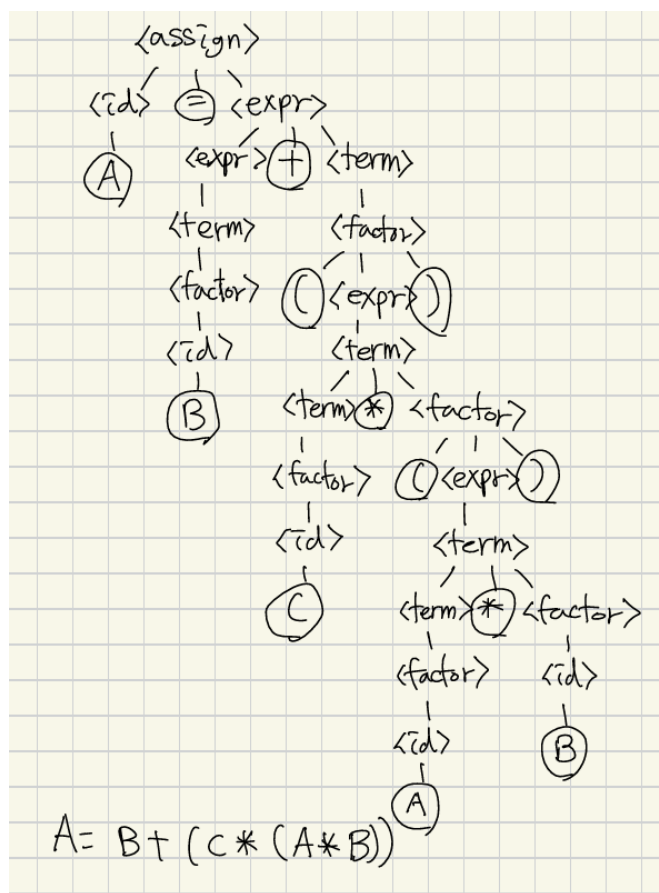 <assign>
<id> = <expr>
A <expr> + <term>
<term> <factor>
<factor> ( <expr> )
<id> <term>
B <term> * <factor>
<factor> ( <expr> )
<id> <term>
C <term> * <factor>
<factor> <id>
<id> B
A
A = B + (C * (A * B))